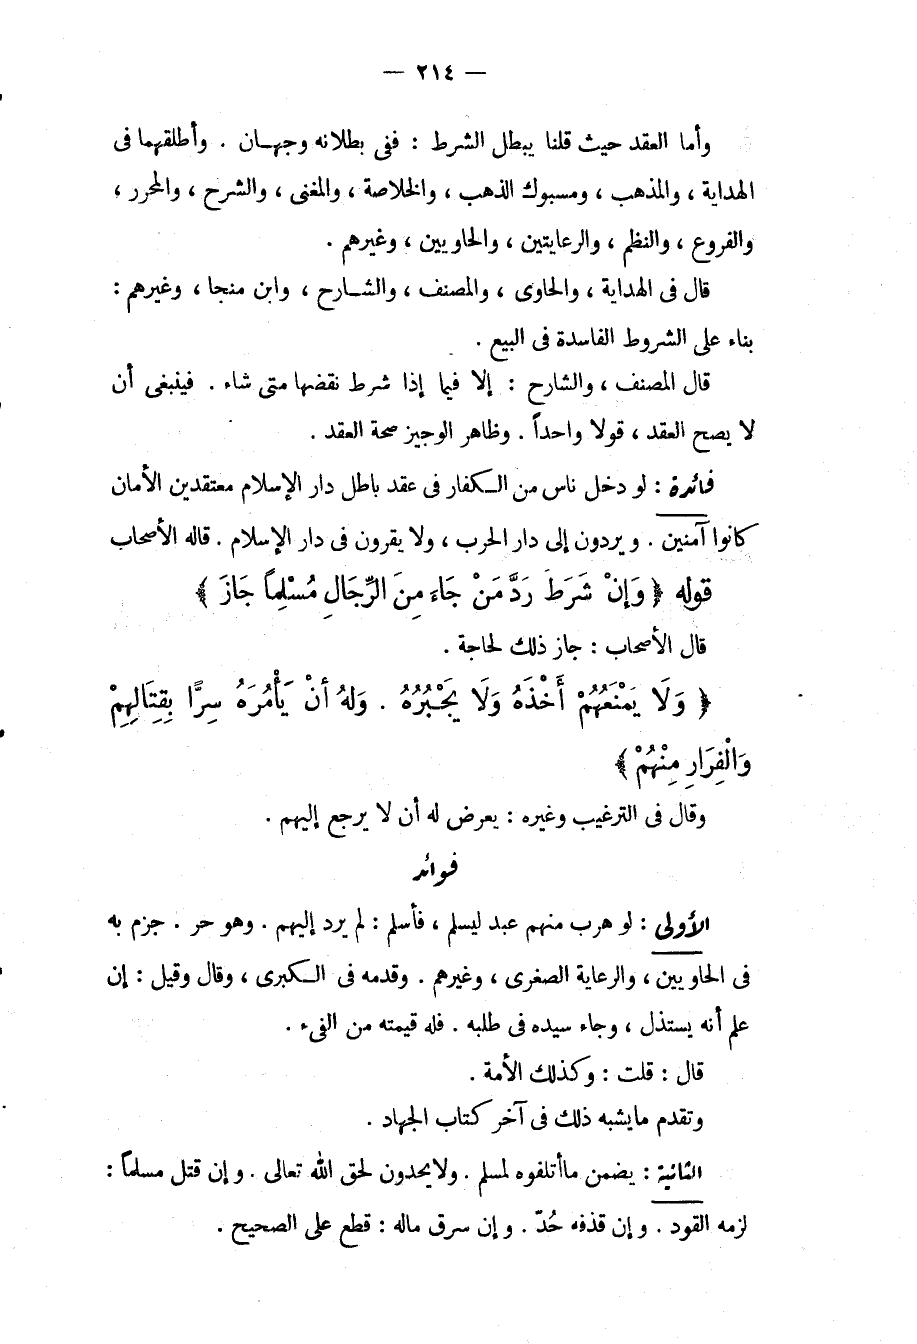 — ٢١٤ —
وأما العقد حيث قلنا يبطل الشرط : ففى بطلانه وجهان . وأطلقهما فى
الهداية ، والمذهب ، ومسبوك الذهب ، والخلاصة ، والمغنى ، والشرح ، والمحرر ،
والفروع ، والنظم ، والرعايتين ، والحاويين ، وغيرهم .
قال فى الهداية ، والحاوى ، والمصنف ، والشارح ، وابن منجا ، وغيرهم :
بناء على الشروط الفاسدة فى البيع .
قال المصنف ، والشارح : إلا فيما إذا شرط نقضها متى شاء . فينبغى أن
لا يصح العقد ، قولا واحداً . وظاهر الوجيز صحة العقد .
فائدة : لو دخل ناس من الكفار فى عقد باطل دار الإسلام معتقدين الأمان
كانوا آمنين . ويردون إلى دار الحرب ، ولا يقرون فى دار الإسلام . قاله الأصحاب
قوله ﴿ وَإِنْ شَرَطَ رَدَّ مَنْ جَاءَ مِنَ الرِّجَالِ مُسْلِماً جَازَ ﴾
قال الأصحاب : جاز ذلك لحاجة .
﴿ وَلَا يَمْنَعُهُمْ أَخْذَهُ وَلَا يُجْبُرُهُ . وَلهُ أنْ يَأْمُرَهُ سِرًّا بِقِتَالِهِمْ
وَالْفِرَارِ مِنْهُمْ ﴾
وقال فى الترغيب وغيره : يعرض له أن لا يرجع إليهم .
فوائد
الأولى : لو هرب منهم عبد ليسلم ، فأسلم : لم يرد إليهم . وهو حر . جزم به
فى الحاويين ، والرعاية الصغرى ، وغيرهم . وقدمه فى الكبرى ، وقال وقيل : إن
علم أنه يستذل ، وجاء سيده فى طلبه . فله قيمته من الفىء .
قال : قلت : وكذلك الأمة .
وتقدم مايشبه ذلك فى آخر كتاب الجهاد .
الثانية : يضمن ماأتلفوه لمسلم . ولايحدون لحق الله تعالى . وإن قتل مسلماً :
لزمه القود . وإن قذفه حُدّ . وإن سرق ماله : قطع على الصحيح .